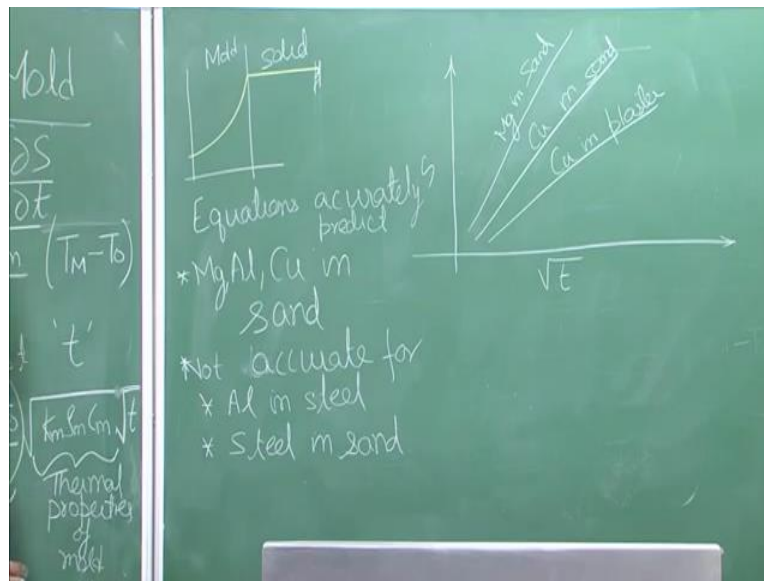 Mold
∂S
∂t
(TM-To)
't'
√KmρmCm √t
Thermal
properties
of
mold
Mold solid
Equations acurately
predict
*MgAl, Cu in
sand
*Not accurate for
* Al in steel
* Steel in sand
S
Mg in sand
Cu in sand
Cu in plaster
√t